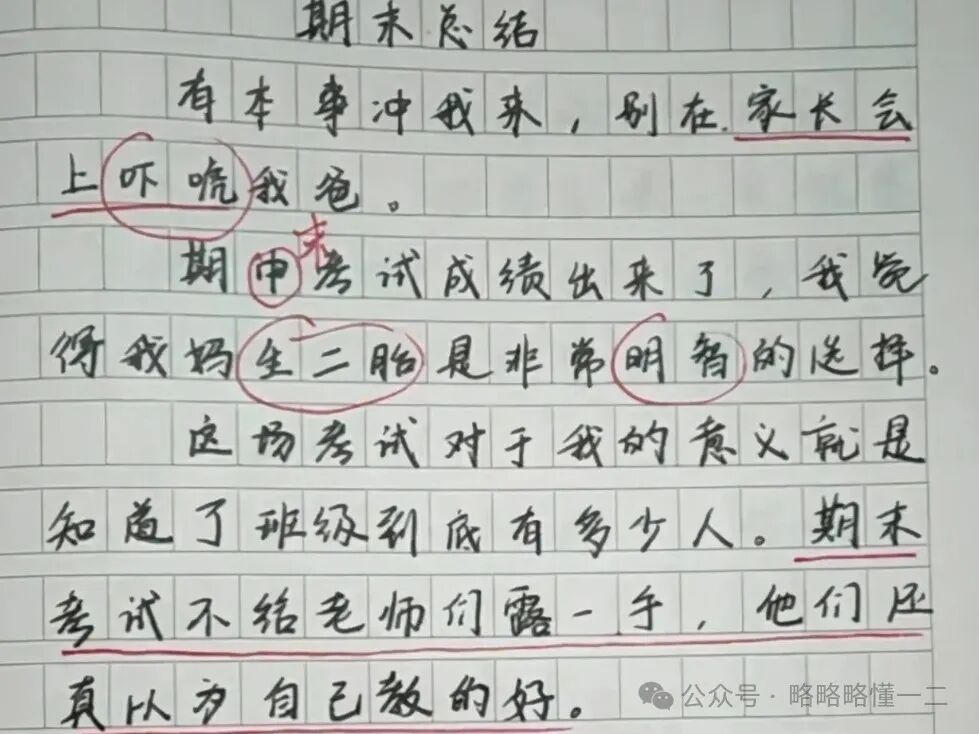 期末总结
有本事冲我来，别在家长会
上吓唬我爸。
末
期中考试成绩出来了，我觉
得我妈生二胎是非常明智的选择。
这场考试对于我的意义就是
知道了班级到底有多少人。期末
考试不给老师们露一手，他们还
真以为自己教的好。
公众号·略略略懂一二